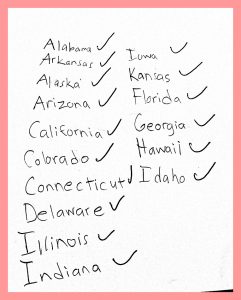 Alabama ✓
Arkansas ✓
Alaska ✓
Arizona ✓
California ✓
Colorado ✓
Connecticut ✓
Delaware ✓
Illinois ✓
Indiana ✓
Iowa ✓
Kansas ✓
Florida ✓
Georgia ✓
Hawaii ✓
Idaho ✓